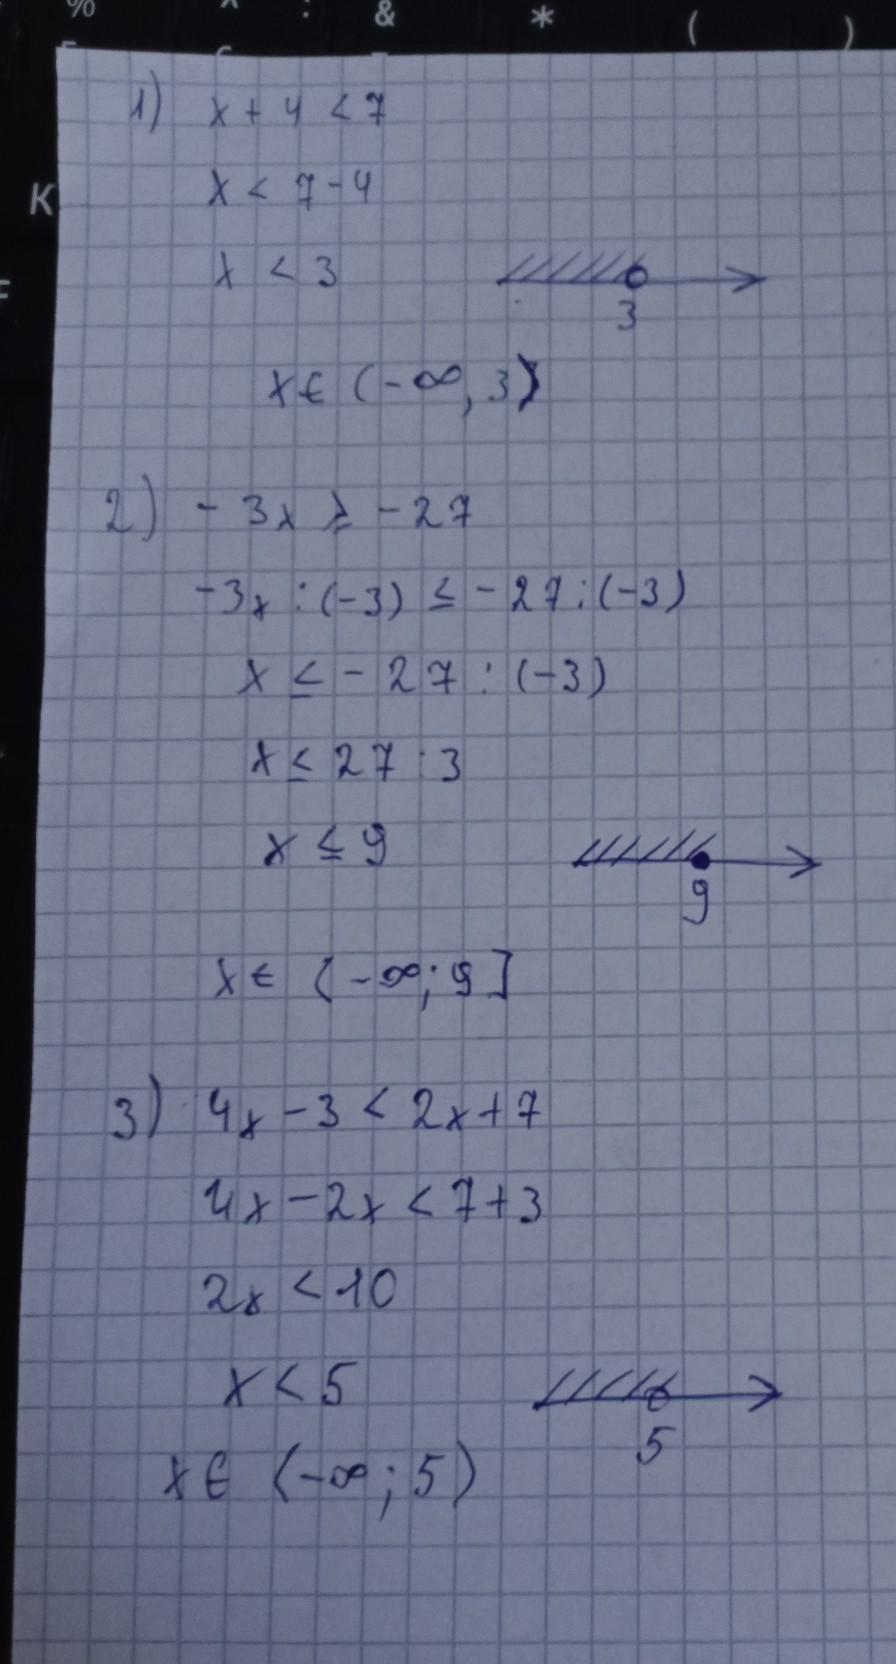 % ^ : & * ( )
K
1) x + 4 < 7
x < 7 - 4
x < 3
3
x ∈ (-∞, 3)
2) - 3x ≥ -27
-3x : (-3) ≤ -27 : (-3)
x ≤ - 27 : (-3)
x ≤ 27 : 3
x ≤ 9
9
x ∈ (-∞; 9]
3) 4x - 3 < 2x + 7
4x - 2x < 7 + 3
2x < 10
x < 5
5
x ∈ (-∞; 5)